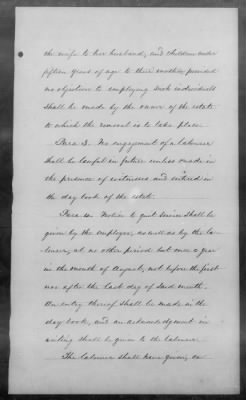 the wife to her husband, and children under
fifteen years of age to their mother provided
no objection to employing such individuals
shall be made by the owner of the estate
to which the removal is to take place.
Para 3. No engagement of a laborer
shall be lawful in future unless made in
the presence of witnesses and entered in
the day book of the estate.
Para 4. Notice to quit service shall be
given by the employer, as well as by the la-
borer, at no other period but once a year
in the month of August, not before the first
nor after the last day of said month.
An entry thereof shall be made in the
day book, and an acknowledgement in
writing shall be given to the laborer.
The laborer shall have given, or